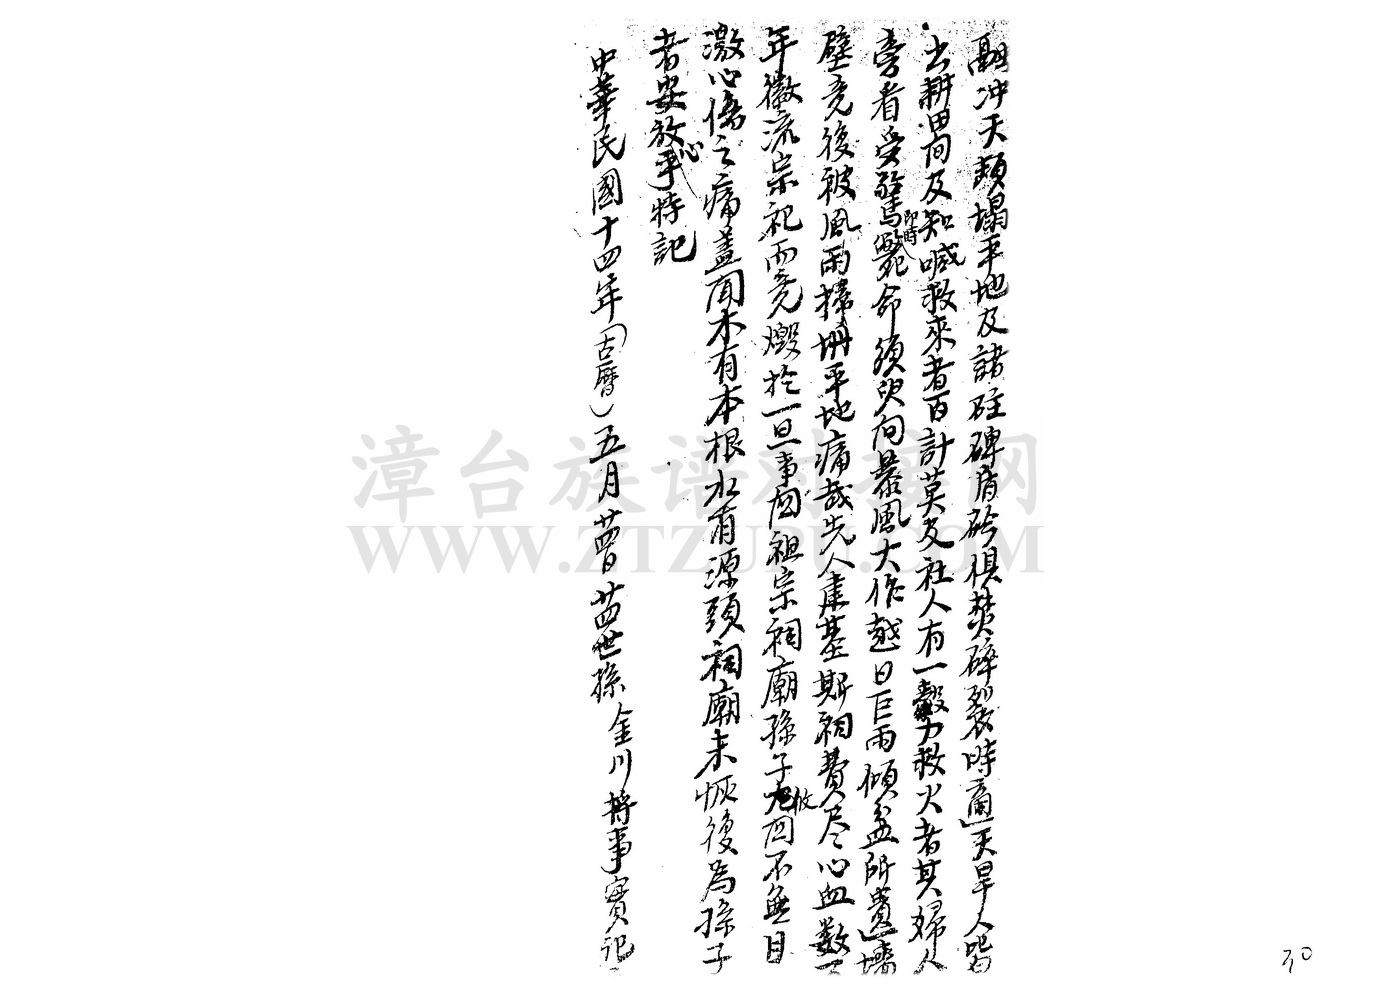 冲天頹塌平地及諸砫磚 俱焚碎裂時適天旱人皆
出耕田間及知喊救來者百計莫及社人有一 力救火者其婦人
旁看受驚即時斃命須臾向暴風大作越日巨雨傾盆所遺墻
壁竟後被風雨 平地痛哉先人肇基斯祠費尽心血数百
年徽流宗祀而竟燬於一旦事因祖宗祠廟孫子 攸因不無目
激心傷之痛蓋聞木有本根水有源頭祠廟未恢復為孫子
者安放心乎特記
中華民國十四年(古曆)五月 日 世孫 金川 將事實記
漳台族谱对接网
WWW.ZTZUPU.COM
30